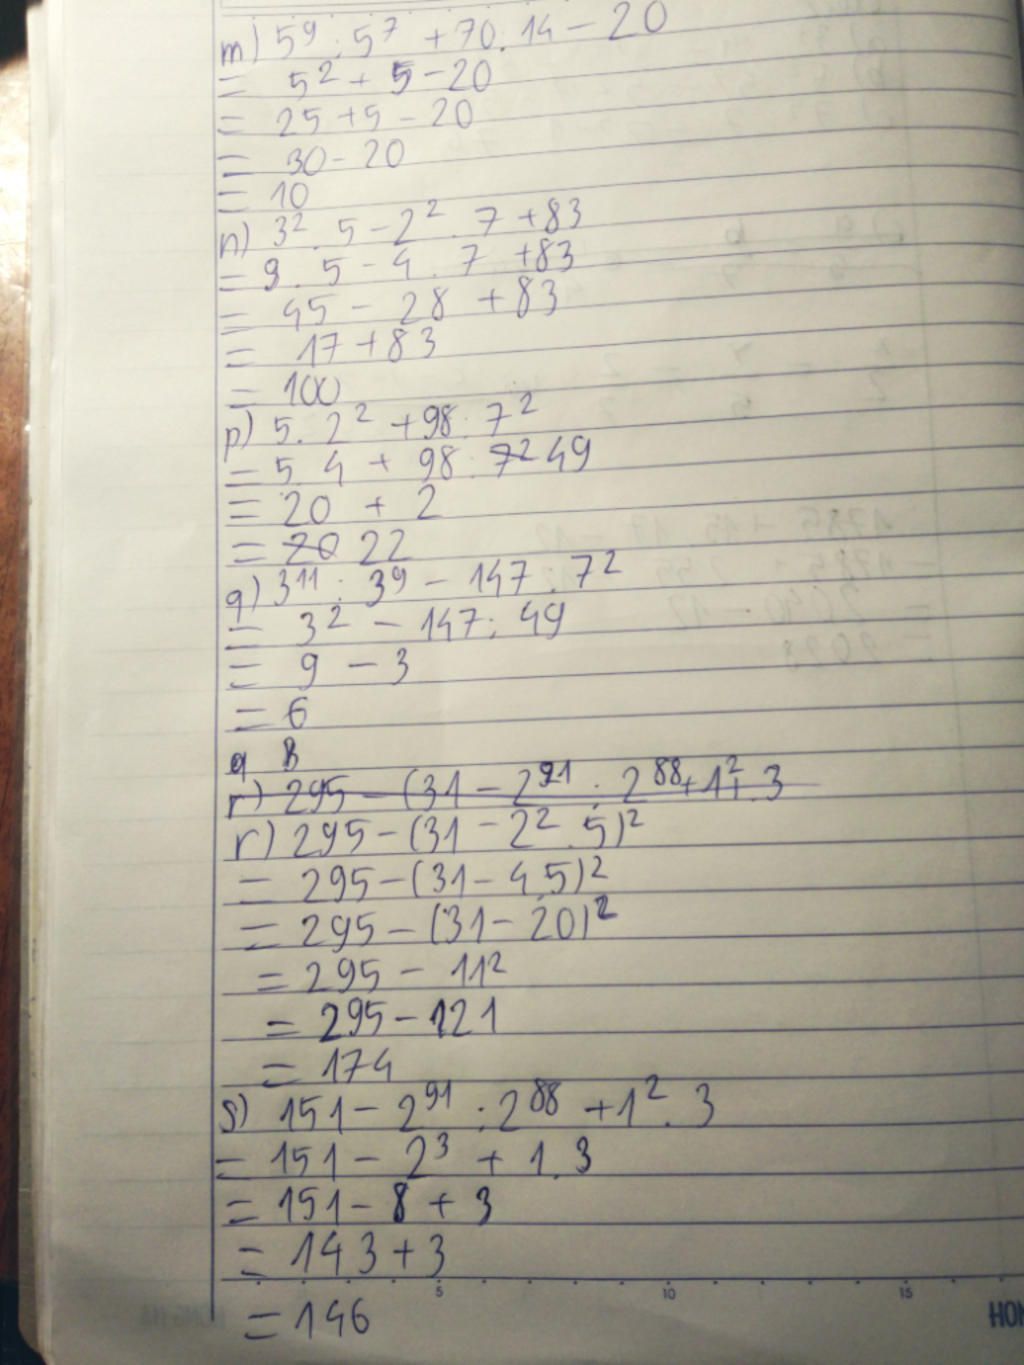 m) 5⁹ : 5⁷ + 70 . 14 - 20
= 5² + 5 - 20
= 25 + 5 - 20
= 30 - 20
= 10
n) 3² . 5 - 2² . 7 + 83
= 9 . 5 - 4 . 7 + 83
= 45 - 28 + 83
= 17 + 83
= 100
p) 5 . 2² + 98 : 7²
= 5 . 4 + 98 : 7² 49
= 20 + 2
= 20 22
q) 3¹¹ : 3⁹ - 147 : 7²
= 3² - 147 : 49
= 9 - 3
= 6
r) 295 - (31 - 2⁹¹ : 2⁸⁸ + 1² . 3
r) 295 - (31 - 2² . 5)²
= 295 - (31 - 4.5)²
= 295 - (31 - 20)²
= 295 - 11²
= 295 - 121
= 174
s) 151 - 2⁹¹ : 2⁸⁸ + 1² . 3
= 151 - 2³ + 1 . 3
= 151 - 8 + 3
= 143 + 3
5 10 15
= 146